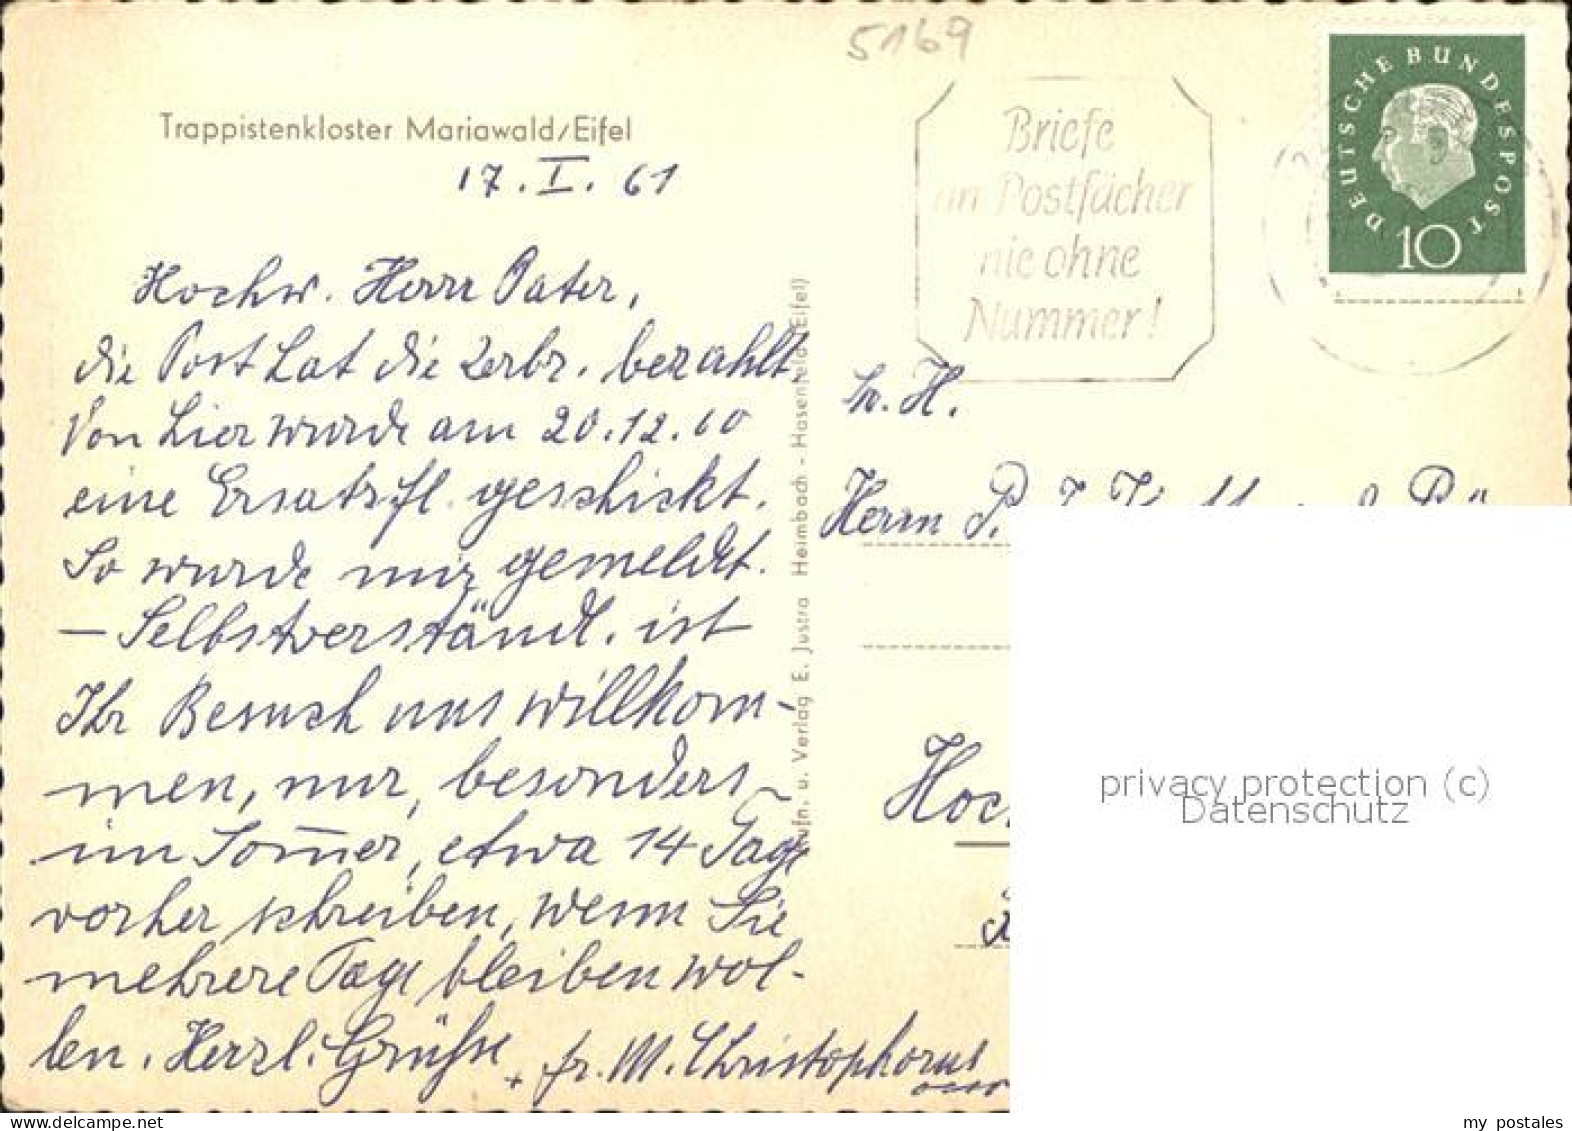 5169
Trappistenkloster Mariawald/Eifel
17. I. 61
Hochw. Herr Pater,
die Post hat die Zerbr. bezahlt
Von hier wurde am 20.12.60
eine Ersatzfl. geschickt.
So wurde mir gemeldet.
— Selbstverständl. ist
Ihr Besuch uns willkom-
men, nur, besonders
im Som̄er, etwa 14 Tage
vorher schreiben, wenn Sie
mehrere Tage bleiben wol-
len. Herzl. Grüße
+ fr. M. Christophorus
Aufn. u. Verlag E. Justra Heimbach - Hasenfeld (Eifel)
Briefe
an Postfächer
nie ohne
Nummer!
DEUTSCHE BUNDESPOST
10
H.
Herrn P.
Hoc
privacy protection (c)
Datenschutz
my postales